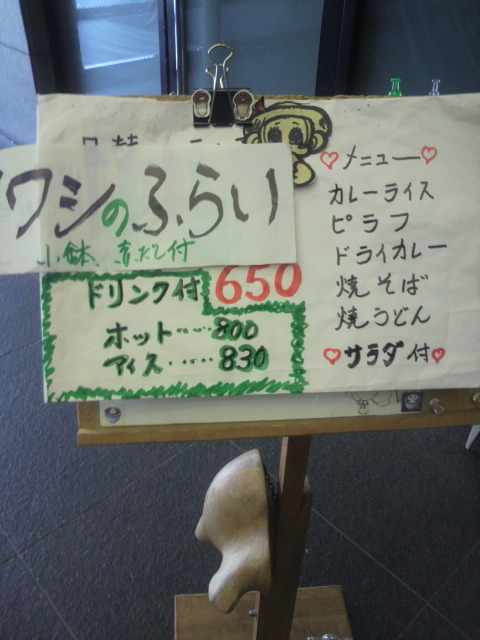 ワシのふらい
小鉢、煮だし付
650
ドリンク付
ホット……800
アイス……830
♡メニュー♡
カレーライス
ピラフ
ドライカレー
焼そば
焼うどん
♡サラダ付♡